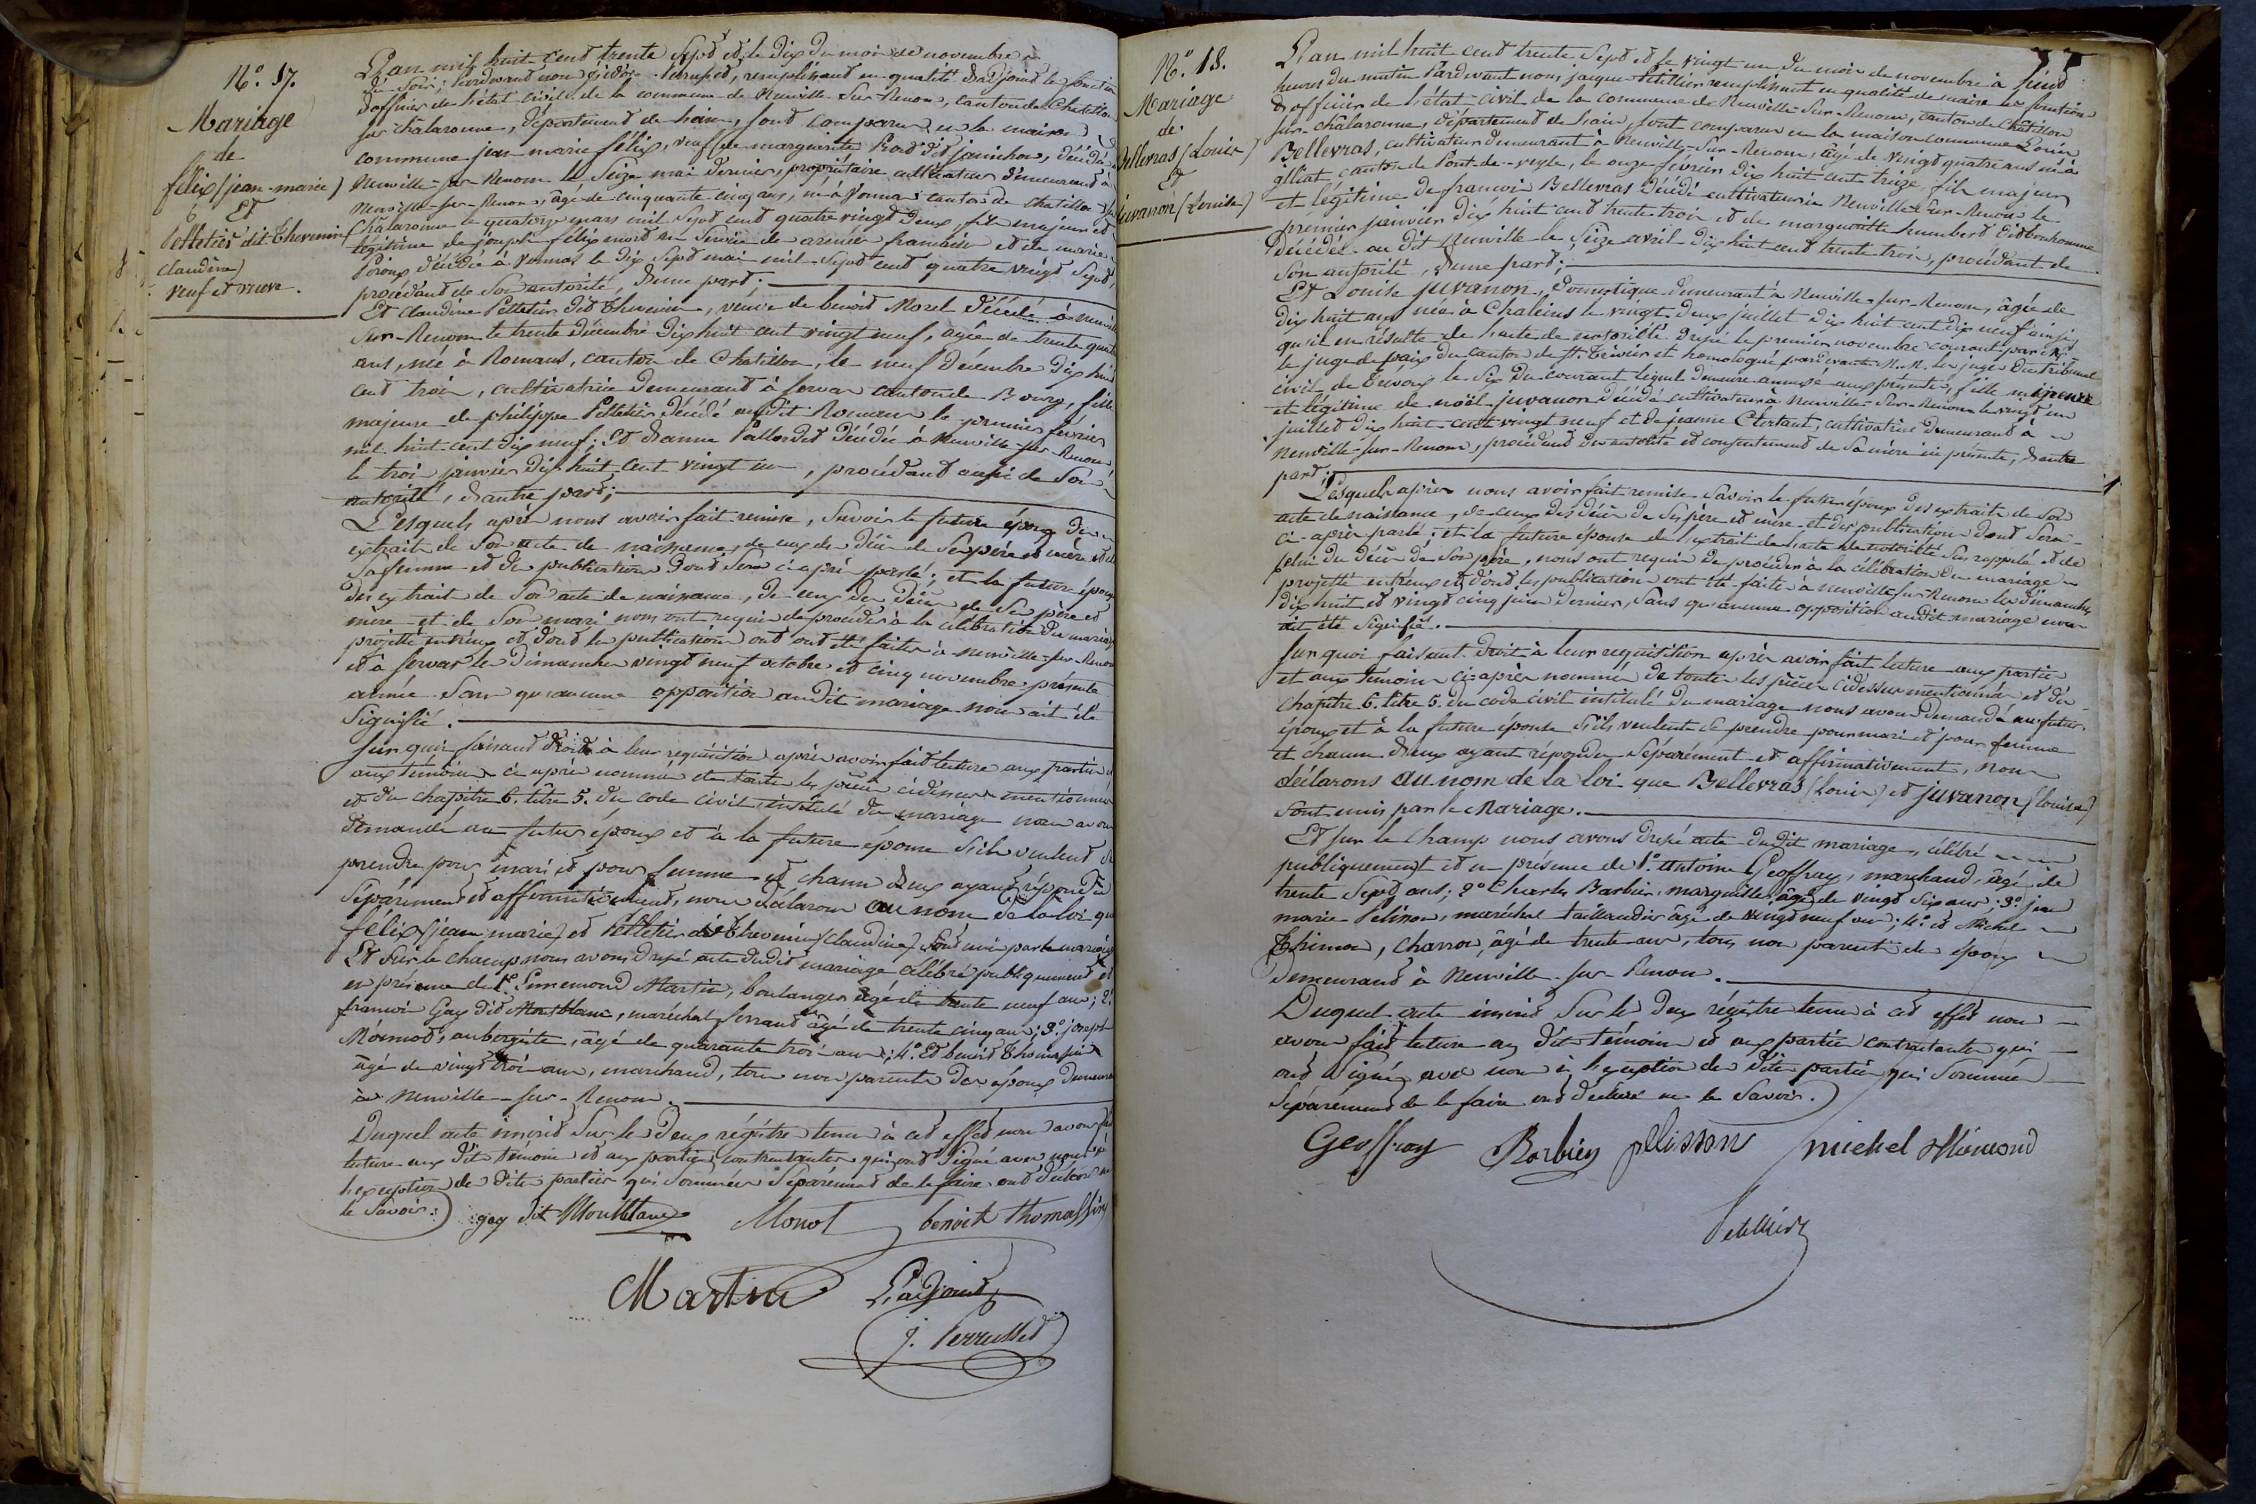 N.° 17.
Mariage
de
félix (jean-marie)
Et
Pelletier dit Thevenin
(claudine)
veuf et veuve.
L'an mil huit cent trente sept et le dix du mois de novembre à
du soir, Pardevant nous isidore Perruset, remplissant en qualité d'adjoint les fonctions
d'officier de l'état civil de la commune de Neuville-sur-Renom, canton de Chatillon
sur chalaronne, département de l'ain, sont comparus en la maison
commune jean-marie félix, veuf de marguerite Bord dit janichon, décédée à
Neuville-sur-Renom le seize mai dernier, propriétaire cultivateur demeurant à
Neuville-sur-Renom, âgé de cinquante cinq ans, né à Vonnas canton de chatillon sur
Chalaronne le quatorze mars mil sept cent quatre vingt deux fils majeur et
légitime de joseph félix mort au service des armées françaises et de marie
Péroux décédée à Vonnas le dix sept mai mil sept cent quatre vingt sept,
procédant de son autorité, d'une part.
Et claudine Pelletier dit Thevenin, veuve de benoit Morel décédé à Neuville
sur-Renom le trente décembre dix huit cent vingt neuf, âgée de trente quatre
ans, née à Romans, canton de Chatillon, le neuf décembre dix huit
cent trois, cultivatrice demeurant à servas canton de Bourg, fille
majeure de philippe Pelletier décédé audit Romans le premier février
mil huit cent dix neuf; Et d'anne Pallordet décédée à Neuville-sur-Renom
le trois janvier dix huit cent vingt un, procédant aussi de son
autorité, d'autre part;
Lesquels après nous avoir fait remise, savoir le futur époux des
extraits de son acte de naissance, de ceux des décès de ses père et mère et de
sa femme et des publications dont sera ci-après parlé; et la future épouse
des extraits de son acte de naissance, de ceux des décès de ses père et
mère et de son mari nous ont requis de procéder à la célébration du mariage
projetté entr'eux et dont les publications ont été faites à neuville-sur-Renom
et à servas les dimanches vingt neuf octobre et cinq novembre présente
année sans qu'aucune opposition audit mariage nous ait été
signifié.
Sur quoi faisant droit à leur requisition après avoir fait lecture aux parties
aux témoins ci-après nommés de toutes les pièces cidessus mentionnées
et du chapitre 6. titre 5. du code civil intitulé du mariage nous avons
demandé au futur époux et à la future épouse s'ils veulent se
prendre pour mari et pour femme et chacun d'eux ayant répondu
séparément et affirmativement, nous déclarons au nom de la loi que
félix (jean-marie) et Pelletier dit Thevenin (claudine) sont unis par le mariage
Et sur le champ nous avons dressé acte dudit mariage célébré publiquement et
en présence de 1.° Ennemond Martin, boulanger âgé de trente neuf ans; 2.°
françois Gay dit Montblanc, maréchal ferrant âgé de trente cinq ans; 3.° joseph
Monnot, aubergiste, âgé de quarante trois ans; 4.° Et benoit Thomassin
âgé de vingt trois ans, marchand, tous non parents des époux demeurant
à Neuville-sur-Renom.
Duquel acte inscrit sur les deux régistres tenus à cet effet nous avons fait
lecture aux dits témoins et aux parties contractantes qui ont signé avec nous à
l'exception des dites parties qui sommées séparément de le faire ont déclaré ne
le savoir.
gay dit Montblanc Monot benoit thomassin
Martin L'adjoint
j. Perrusset
77
N.° 18.
Mariage
de
Bellevras (Louis)
Et
juvanon (Louise)
L'an mil huit cent trente sept et le vingt un du mois de novembre à
heures du matin Pardevant nous jacque Petillier remplissant en qualité de maire les fonctions
d'officier de l'état-civil de la commune de Neuville-sur-Renom, canton de Châtillon
sur-châlaronne, département de l'ain, sont comparus en la maison commune Louis
Bellevras, cultivateur demeurant à Neuville-sur-Renom, âgé de vingt quatre ans né à
illiat canton de Pont-de-veyle, le onze février dix huit cent treize, fils majeur
et légitime de françois Bellevras décédé cultivateur à Neuville-sur-Renom le
premier janvier dix huit cent trente trois et de marguerite humbert dit bonhomme
décédée au dit Neuville le seize avril dix huit cent trente trois, procédant de
son autorité, d'une part;
Et Louise juvanon, domestique demeurant à Neuville-sur-Renom, âgée de
dix huit ans née à Chaleins le vingt deux juillet dix huit cent dix neuf ainsi
qu'il en résulte de l'acte de notoriété dressé le premier novembre courant par
le juge de paix du canton de St Trivier et homologué pardevant M.M. les juges du tribunal
civil de Trévoux le six du courant lequel demeure annexé aux présentes, fille mineure
et légitime de noël juvanon décédé cultivateur à Neuville-sur-Renom le vingt un
juillet dix huit cent vingt neuf et de jeanne Clertant, cultivatrice demeurant à
Neuville-sur-Renom, procédant de l'autorité et consentement de sa mère ici présente, d'autre
part;
Lesquels après nous avoir fait remise savoir le futur époux des extraits de son
acte de naissance, de ceux des décès de ses père et mère et des publications dont sera
ci-après parlé; et la future épouse de l'extrait de l'acte de notoriété sus rappelé et de
celui du décès de son père, nous ont requis de procéder à la célébration du mariage
projetté entr'eux et dont les publications ont été faites à neuville-sur-Renom les dimanches
dix huit et vingt cinq juin dernier, sans qu'aucune opposition audit mariage nous
ait été signifié.
Sur quoi faisant droit à leur requisition après avoir fait lecture aux parties
et aux témoins ci-après nommés de toutes les pièces cidessus mentionnées et du
chapitre 6. titre 5. du code civil intitulé du mariage nous avons demandé au futur
époux et à la future épouse s'ils veulent se prendre pour mari et pour femme
et chacun d'eux ayant répondu séparément et affirmativement, nous
déclarons au nom de la loi que Bellevras (Louis) et juvanon (louise)
sont unis par le Mariage.
Et sur le champ nous avons dressé acte dudit mariage, célébré
publiquement et en présence de 1.° antoine Geoffray, marchand, âgé de
trente sept ans; 2.° Charles Barbier, marguillé, âgé de vingt six ans; 3.° jean
marie Pelisson, maréchal taillandier âgé de vingt neuf ans; 4.° et Michel
Thimon, charron, âgé de trente ans, tous non parents des époux
demeurant à Neuville-sur-Renom.
Duquel acte inscrit sur les deux régistres tenus à cet effet nous
avons fait lecture aux dits témoins et aux parties contractantes qui
ont signé avec nous à l'exception des dites parties qui sommées
séparément de le faire ont déclaré ne le savoir.
Geoffray Barbier pelisson michel
Petellier